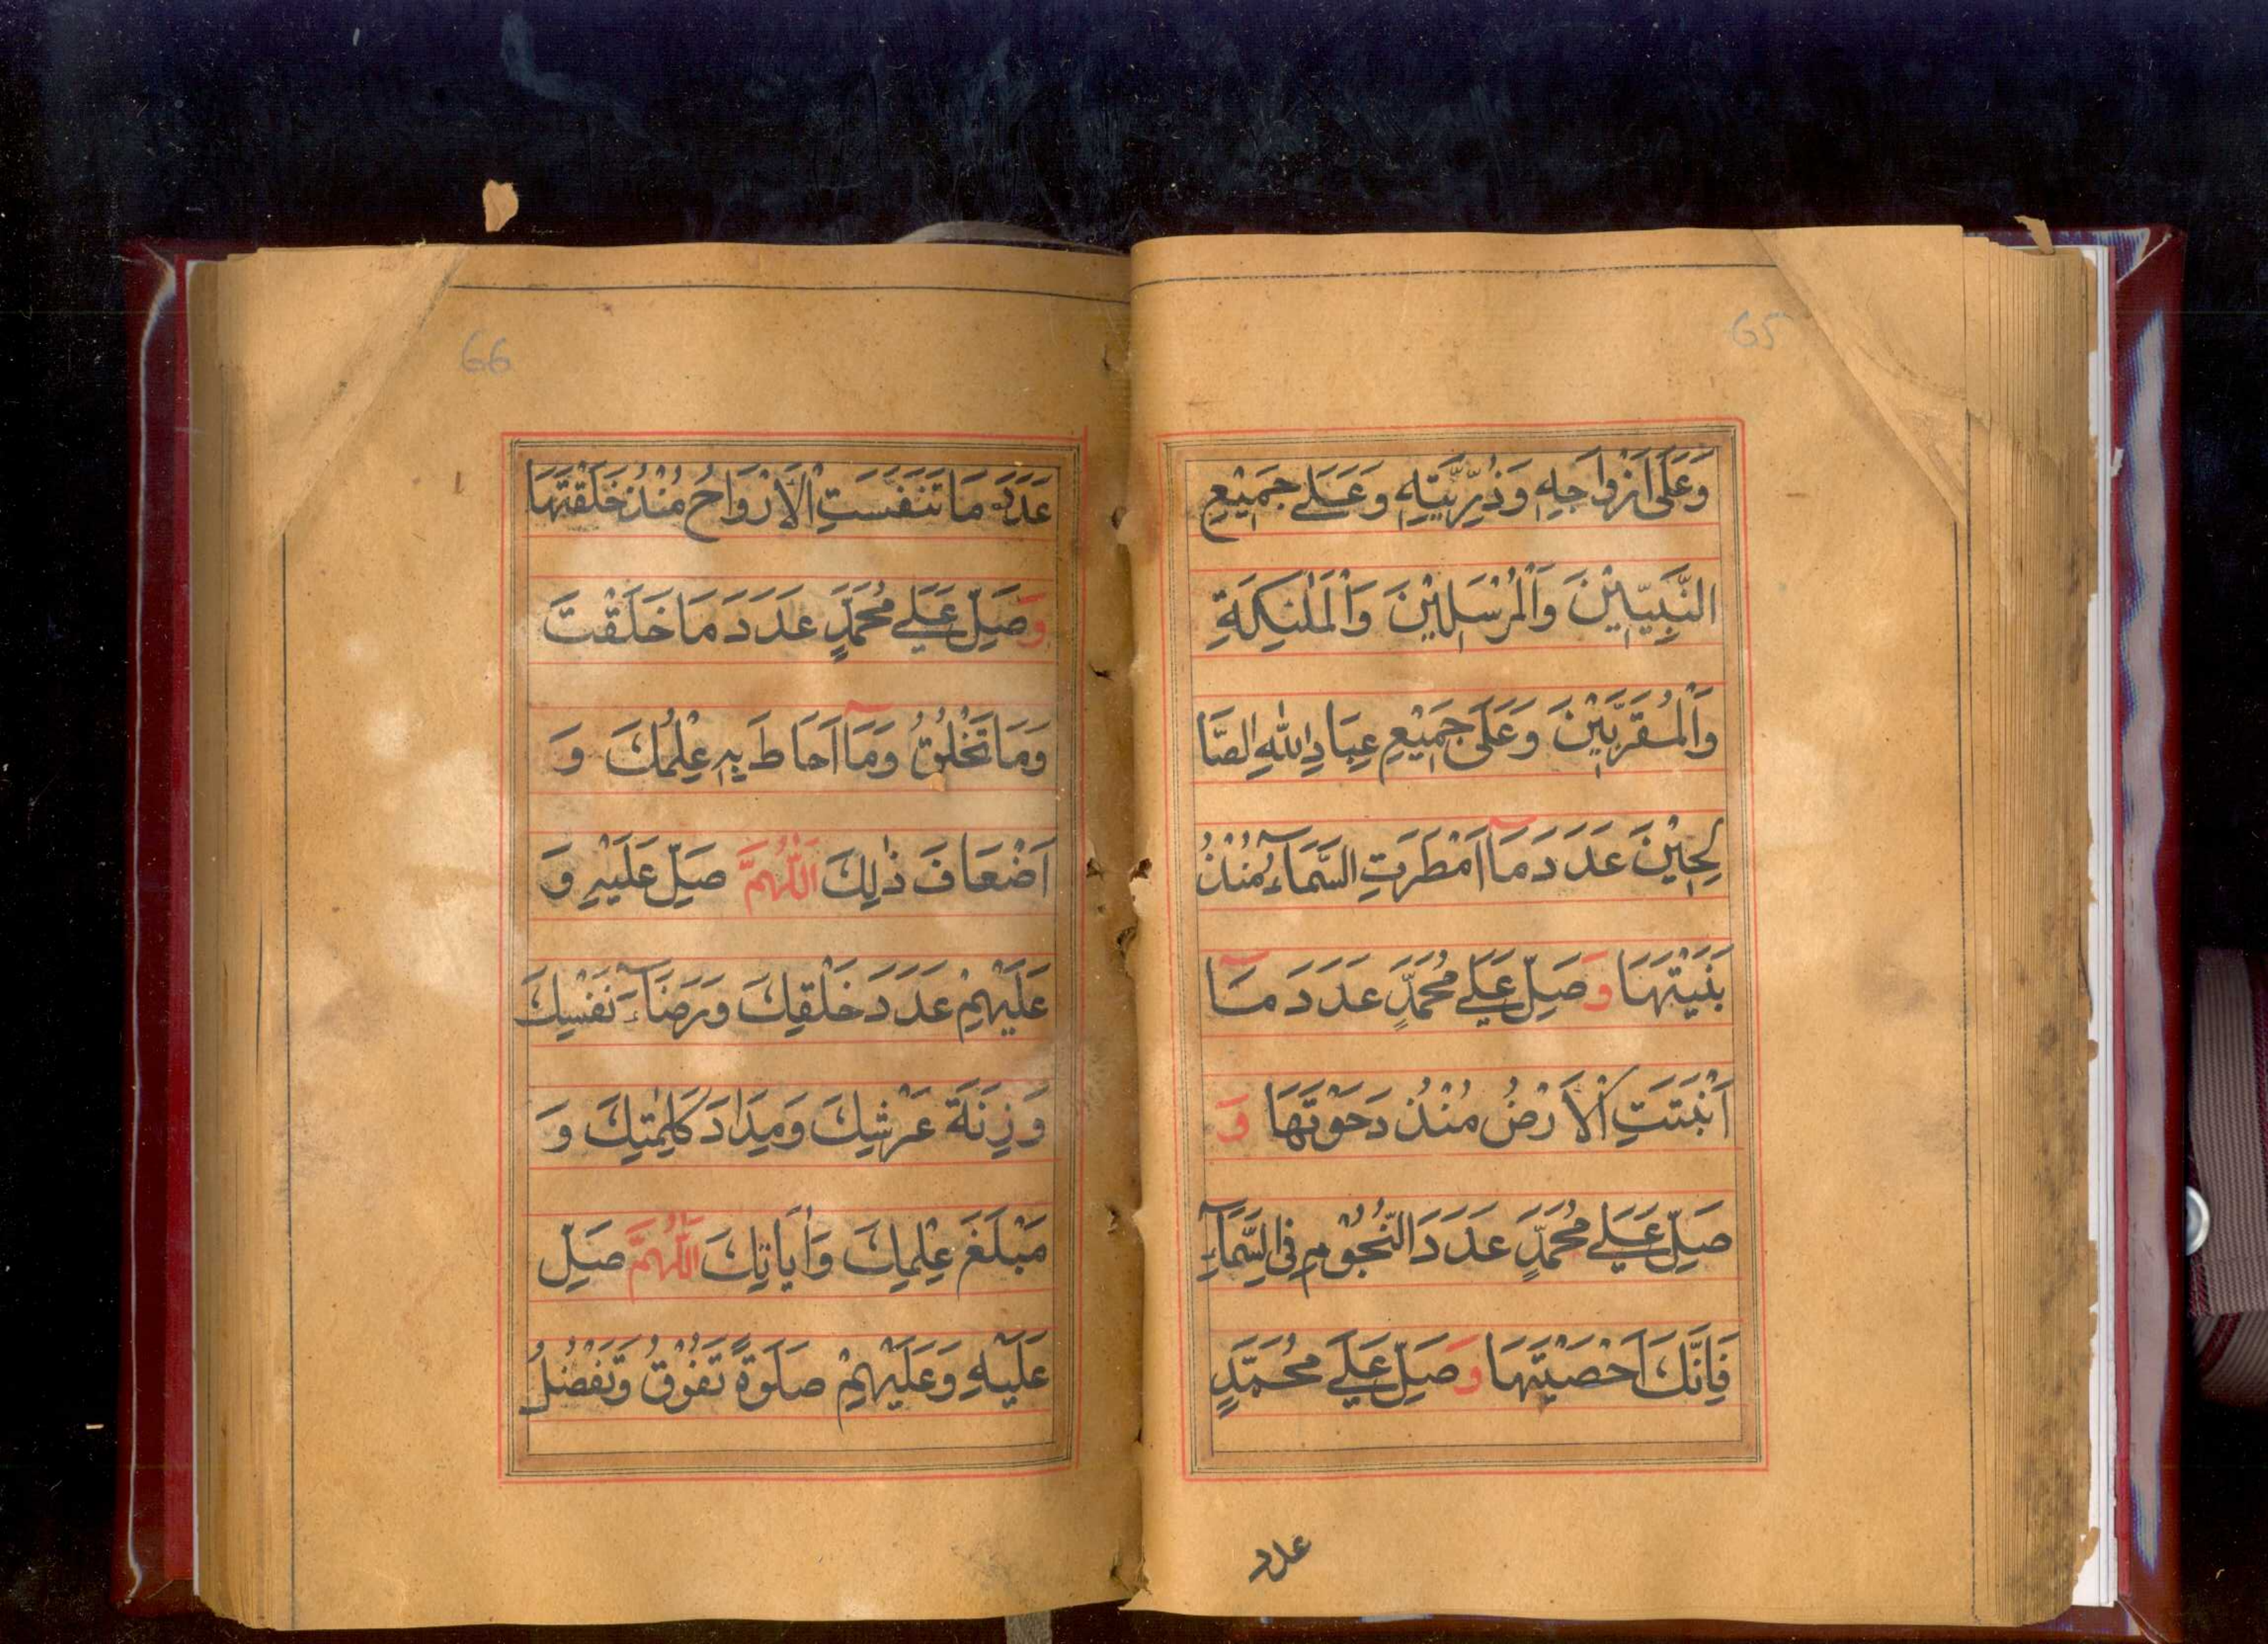 65
وَعَلَى اَزْوَاجِهٖ وَذُرِّيَّتِهٖ وَعَلٰے جَمِيْعِ
النَّبِيّٖيْنَ وَالْمُرْسَلِيْنَ وَالْمَلٰئِكَةِ
وَالْمُقَرَّبِيْنَ وَعَلَى جَمِيْعِ عِبَادِ اللّٰهِ الصَّا
لِحِيْنَ عَدَدَ مَآ اَمْطَرَتِ السَّمَآءُ مُنْذُ
بَنَيْتَهَا وَصَلِّ عَلٰے مُحَمَّدٍ عَدَدَ مَآ
اَنْبَتَتِ الْاَرْضُ مُنْذُ دَحَوْتَهَا وَ
صَلِّ عَلٰے مُحَمَّدٍ عَدَدَ النُّجُوْمِ فِى السَّمَآءِ
فَاِنَّكَ اَحْصَيْتَهَا وَصَلِّ عَلٰے مُحَمَّدٍ
عدد
66
عَدَدَ مَا تَنَفَّسَتِ الْاَرْوَاحُ مُنْذُ خَلَقْتَهَا
وَصَلِّ عَلٰے مُحَمَّدٍ عَدَدَ مَا خَلَقْتَ
وَمَا تَخْلُقُ وَمَآ اَحَاطَ بِهٖ عِلْمُكَ وَ
اَضْعَافَ ذٰلِكَ اَللّٰهُمَّ صَلِّ عَلَيْهِ وَ
عَلَيْهِمْ عَدَدَ خَلْقِكَ وَرِضَآءَ نَفْسِكَ
وَزِنَةَ عَرْشِكَ وَمِدَادَ كَلِمٰتِكَ وَ
مَبْلَغَ عِلْمِكَ وَاٰيَاتِكَ اَللّٰهُمَّ صَلِّ
عَلَيْهِ وَعَلَيْهِمْ صَلَوٰةً تَفُوْقُ وَتَفْضُلُ